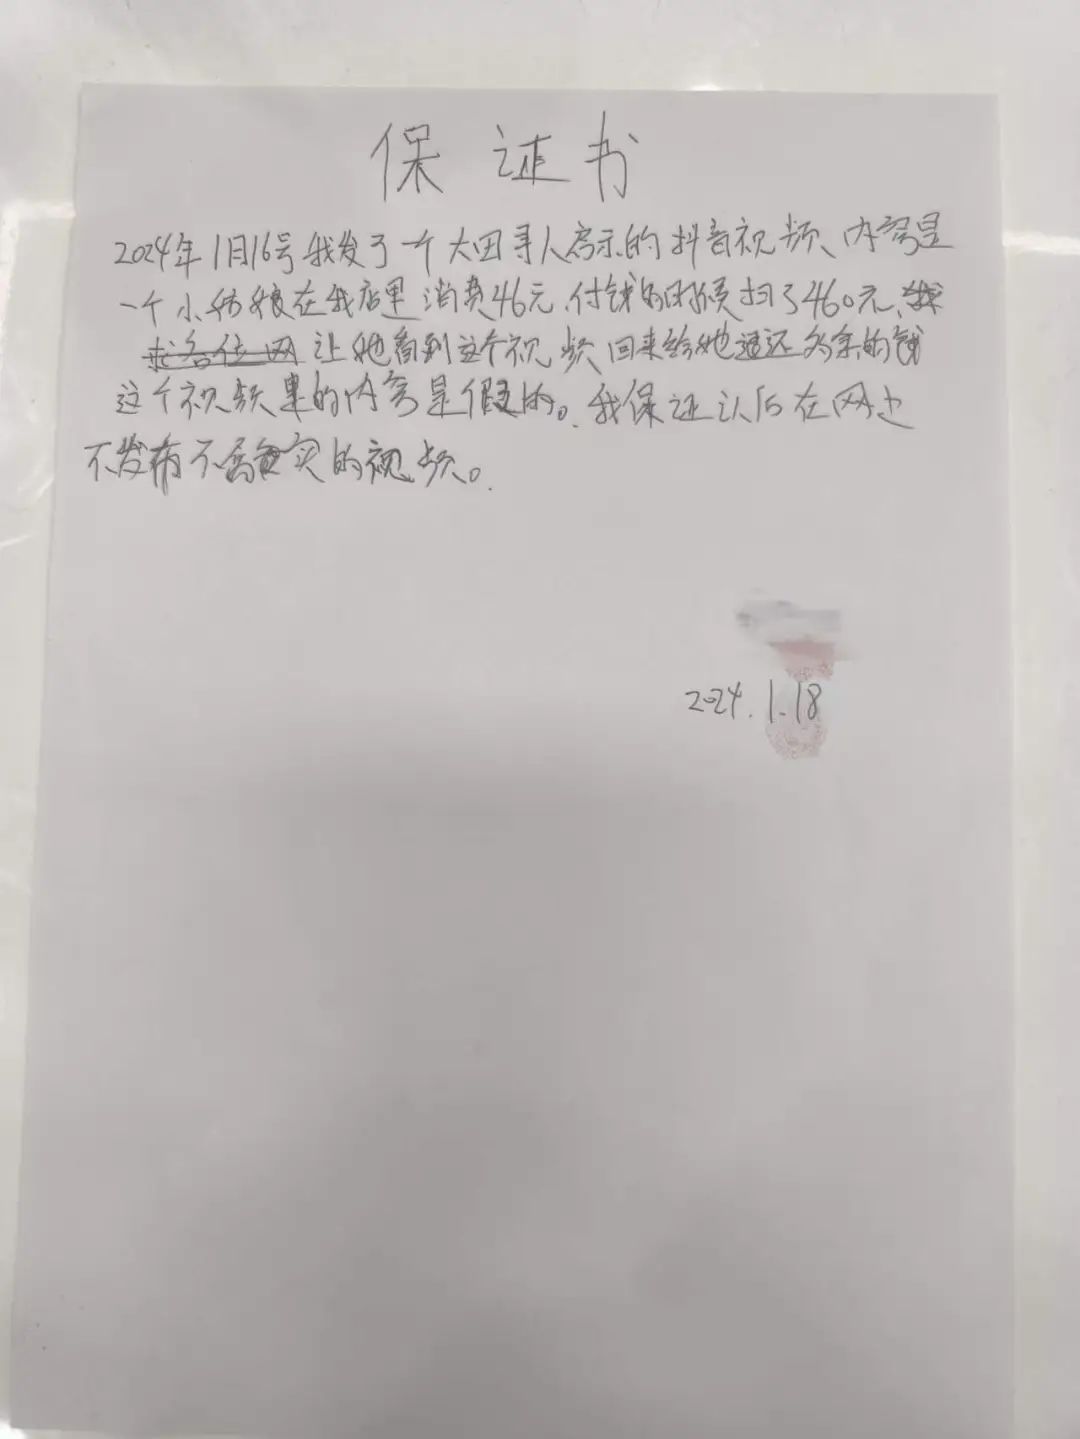 保证书
2024年1月16号我发了一个大田寻人启示的抖音视频、内容是
一个小姑娘在我店里消费46元、付钱的时候扫了460元、我
求各位网让她看到这个视频回来给她退还多余的钱
这个视频里的内容是假的。我保证以后在网上
不发布不属实的视频。
2024.1.18